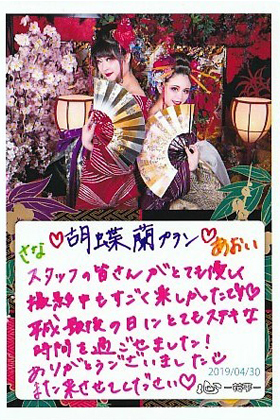 ♡胡蝶蘭プラン♡
さな
あおい
スタッフの皆さんがとても優しく
撮影中もすごく楽しかったです♡
平成最後の日にとてもステキな
時間を過ごせました!
ありがとうございました♡
また来させてください♡
2019/04/30